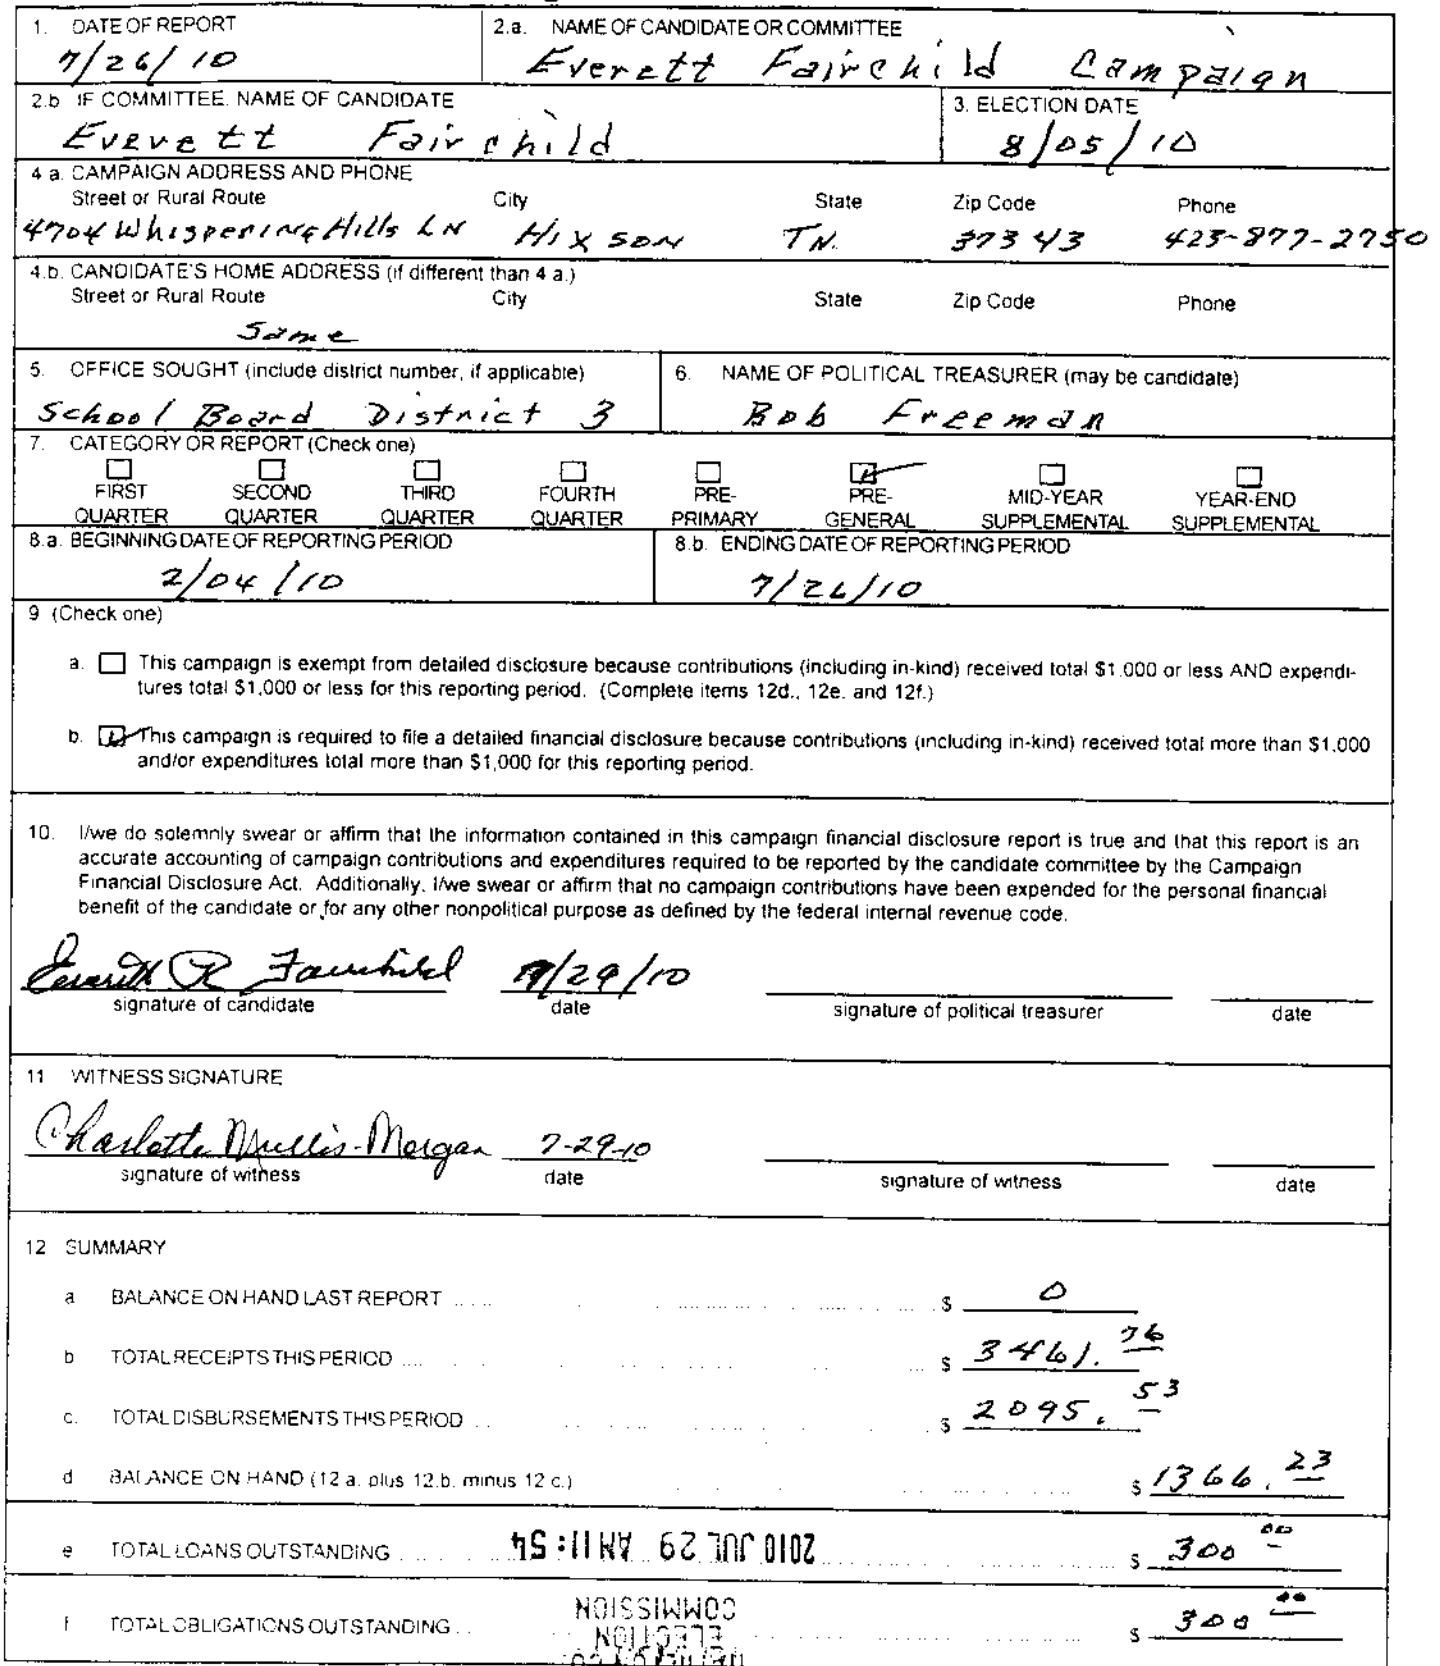 1. DATE OF REPORT
7/26/10
2.a. NAME OF CANDIDATE OR COMMITTEE
Everett Fairchild Campaign
2.b IF COMMITTEE, NAME OF CANDIDATE
Everett Fairchild
3. ELECTION DATE
8/05/10
4 a. CAMPAIGN ADDRESS AND PHONE
Street or Rural Route City State Zip Code Phone
4704 Whispering Hills LN HIXSON TN. 37343 423-877-2750
4.b. CANDIDATE'S HOME ADDRESS (if different than 4 a.)
Street or Rural Route City State Zip Code Phone
Same
5. OFFICE SOUGHT (include district number, if applicable)
School Board District 3
6. NAME OF POLITICAL TREASURER (may be candidate)
Bob Freeman
7. CATEGORY OR REPORT (Check one)
FIRST QUARTER
SECOND QUARTER
THIRD QUARTER
FOURTH QUARTER
PRE-PRIMARY
PRE-GENERAL
MID-YEAR SUPPLEMENTAL
YEAR-END SUPPLEMENTAL
8.a. BEGINNING DATE OF REPORTING PERIOD
2/04/10
8.b. ENDING DATE OF REPORTING PERIOD
7/26/10
9 (Check one)
a. This campaign is exempt from detailed disclosure because contributions (including in-kind) received total $1.000 or less AND expendi-
tures total $1,000 or less for this reporting period. (Complete items 12d., 12e. and 12f.)
b. This campaign is required to file a detailed financial disclosure because contributions (including in-kind) received total more than $1,000
and/or expenditures total more than $1,000 for this reporting period.
10. I/we do solemnly swear or affirm that the information contained in this campaign financial disclosure report is true and that this report is an
accurate accounting of campaign contributions and expenditures required to be reported by the candidate committee by the Campaign
Financial Disclosure Act. Additionally, I/we swear or affirm that no campaign contributions have been expended for the personal financial
benefit of the candidate or for any other nonpolitical purpose as defined by the federal internal revenue code.
Everett R Fairchild 7/29/10
signature of candidate date signature of political treasurer date
11 WITNESS SIGNATURE
Charlotte Mullis-Morgan 7-29-10
signature of witness date signature of witness date
12 SUMMARY
a BALANCE ON HAND LAST REPORT $ 0
b TOTAL RECEIPTS THIS PERIOD $ 3461.76
c. TOTAL DISBURSEMENTS THIS PERIOD $ 2095.53
d BALANCE ON HAND (12 a. plus 12.b. minus 12 c.) $ 1366.23
e TOTAL LOANS OUTSTANDING $ 300 00
2010 JUL 29 AM 11:54
f TOTAL OBLIGATIONS OUTSTANDING $ 300 00
COMMISSION
ELECTION